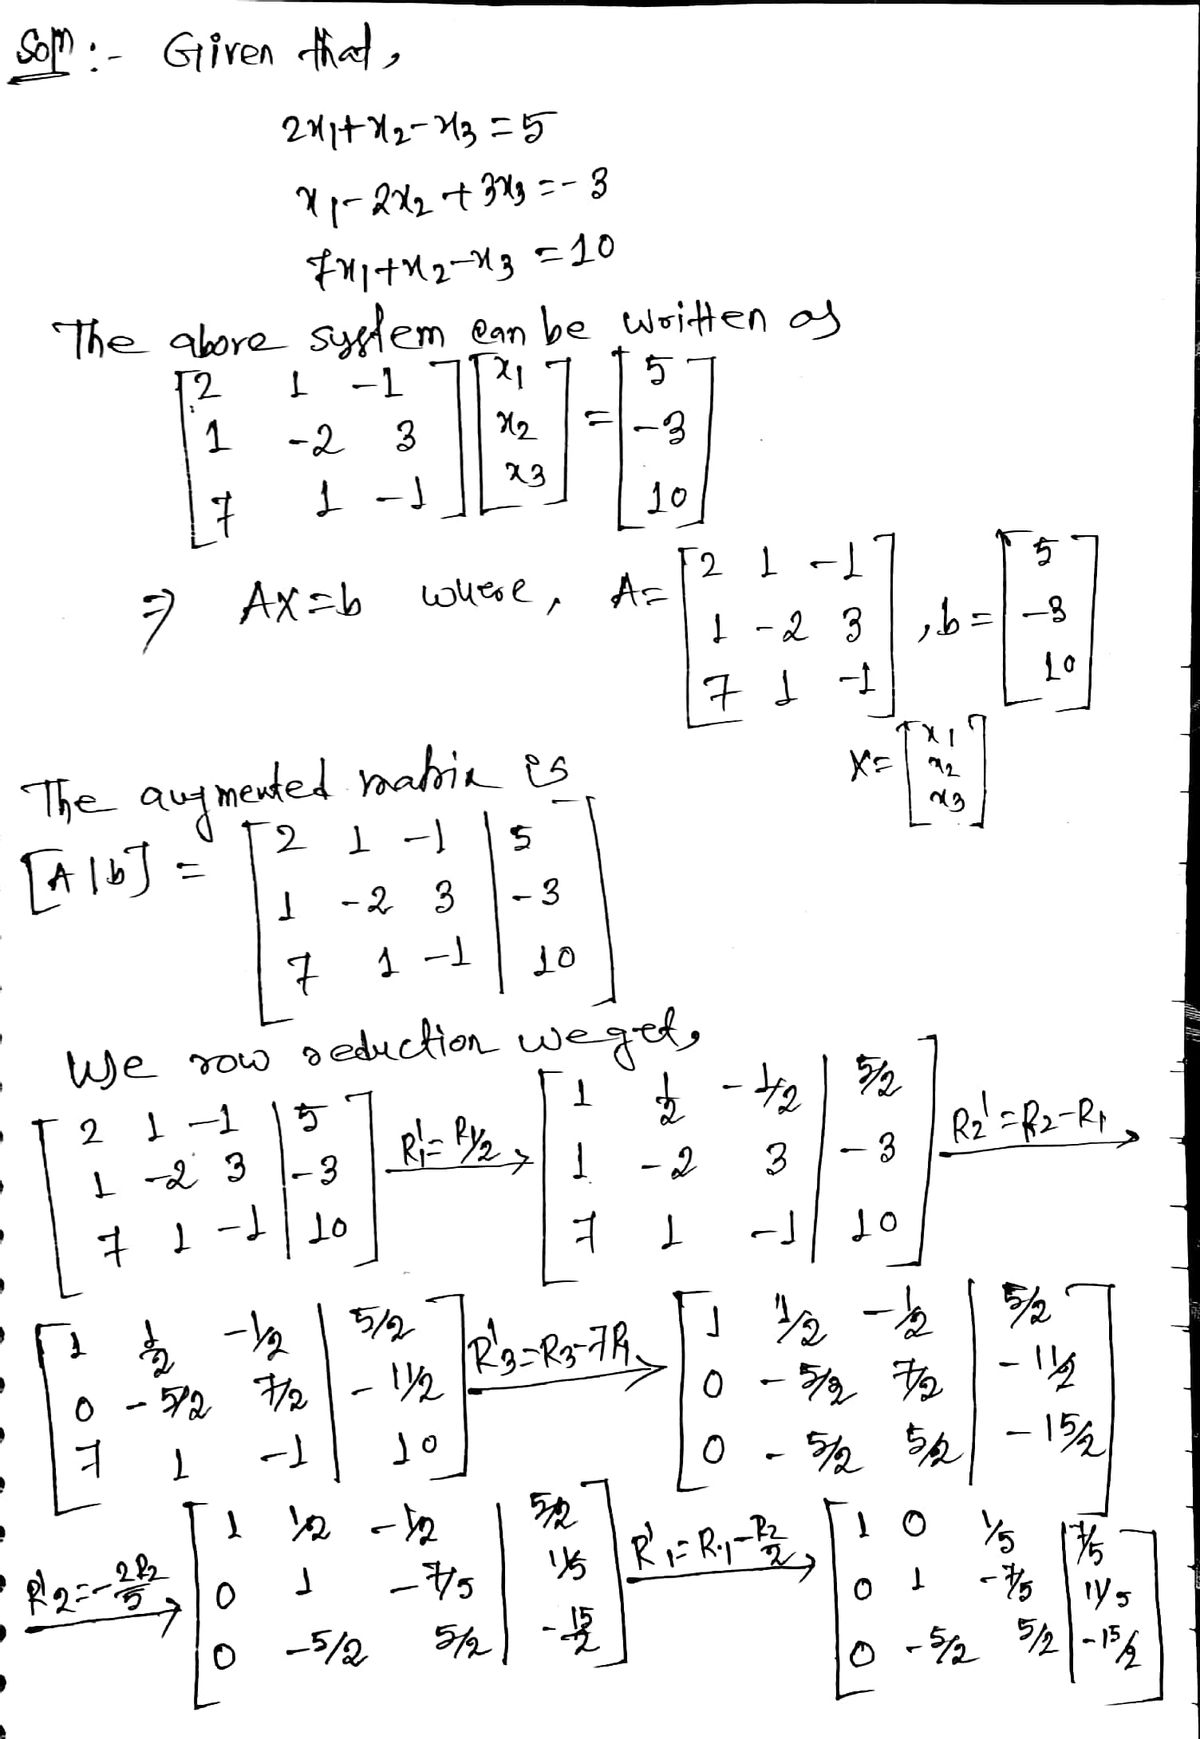 Soln :- Given that,
2x₁+x₂-x₃=5
x₁-2x₂+3x₃=-3
7x₁+x₂-x₃=10
The above system can be written as
[2 1 -1; 1 -2 3; 7 1 -1] [x₁; x₂; x₃] = [5; -3; 10]
⇒ AX=b where, A= [2 1 -1; 1 -2 3; 7 1 -1], b= [5; -3; 10]
X= [x₁; x₂; x₃]
The augmented matrix is
[A|b] = [2 1 -1 | 5; 1 -2 3 | -3; 7 1 -1 | 10]
We row reduction we get,
[2 1 -1 | 5; 1 -2 3 | -3; 7 1 -1 | 10] R₁'=R₁/2 → [1 1/2 -1/2 | 5/2; 1 -2 3 | -3; 7 1 -1 | 10] R₂'=R₂-R₁ →
[1 1/2 -1/2 | 5/2; 0 -5/2 7/2 | -11/2; 7 1 -1 | 10] R'₃=R₃-7R₁ → [1 1/2 -1/2 | 5/2; 0 -5/2 7/2 | -11/2; 0 -5/2 5/2 | -15/2]
R'₂=-2R₂/5 → [1 1/2 -1/2 | 5/2; 0 1 -7/5 | 11/5; 0 -5/2 5/2 | -15/2] R'₁=R₁-R₂/2 → [1 0 1/5 | 7/5; 0 1 -7/5 | 11/5; 0 -5/2 5/2 | -15/2]